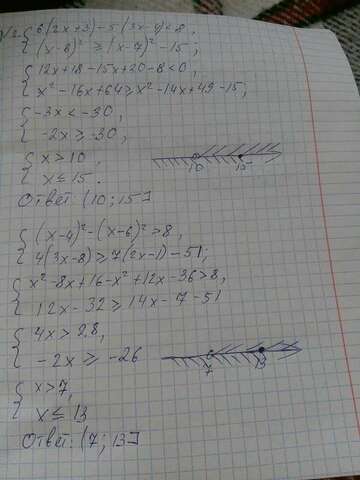 { 6(2x+3)-5(3x-4)<8,
(x-8)² ≥ (x-7)² -15;
{ 12x+18-15x+20-8<0,
x²-16x+64 ≥ x²-14x+49-15;
{ -3x < -30,
-2x ≥ -30,
{ x > 10,
x ≤ 15.
10 15
Ответ: (10; 15]
{ (x-4)²-(x-6)² > 8,
4(3x-8) ≥ 7(2x-1)-51;
{ x²-8x+16-x²+12x-36>8,
12x-32 ≥ 14x-7-51
{ 4x > 28,
-2x ≥ -26
7 13
{ x > 7,
x ≤ 13
Ответ: (7; 13]